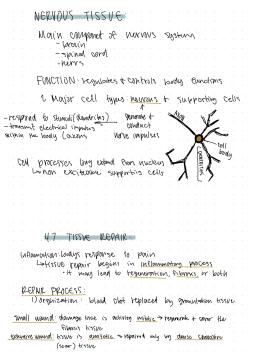 NERVOUS TISSUE
Main component of nervous system
- brain
- spinal cord
- nervs
FUNCTION: regulates & controls body functions
2 Major cell types: neurons & supporting cells
- respond to stimuli (dendrites)
- transmit electrical impulses
within the body (axons
generate &
conduct
nerve impulses
Axon
cell
body
Dendrites
Cell processes long extend from nucleus
↳ non excitable supportig cells
4.7 TISSUE REPAIR
Inflammation: bodys response to pain
↳ tissue repair begins in inflammatory process
- It may lead to regeneration, fibrosis or both
REPAIR PROCESS:
1) Organization: blood clot replaced by granulation tissue
Small wound: damage tissue is actively mitotic → regenerate & the
fibrosis tissue
Extensive wound: tissue is amitotic → repaired only by dense connective
(scar) tissue